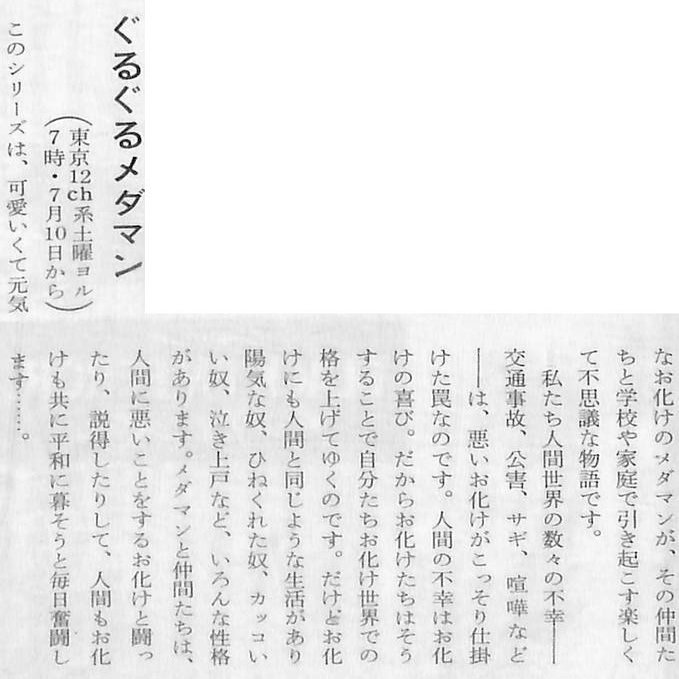 ぐるぐるメダマン
(東京12ch系土曜ヨル
7時・7月10日から)
このシリーズは、可愛いくて元気
なお化けのメダマンが、その仲間た
ちと学校や家庭で引き起こす楽しく
て不思議な物語です。
私たち人間世界の数々の不幸――
交通事故、公害、サギ、喧嘩など
――は、悪いお化けがこっそり仕掛
けた罠なのです。人間の不幸はお化
けの喜び。だからお化けたちはそう
することで自分たちお化け世界での
格を上げてゆくのです。だけどお化
けにも人間と同じような生活があり
陽気な奴、ひねくれた奴、カッコい
い奴、泣き上戸など、いろんな性格
があります。メダマンと仲間たちは、
人間に悪いことをするお化けと闘っ
たり、説得したりして、人間もお化
けも共に平和に暮そうと毎日奮闘し
ます……。